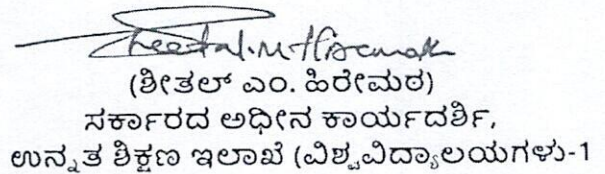 Sheetal.M.Hiremath
(ಶೀತಲ್ ಎಂ. ಹಿರೇಮಠ)
ಸರ್ಕಾರದ ಅಧೀನ ಕಾರ್ಯದರ್ಶಿ,
ಉನ್ನತ ಶಿಕ್ಷಣ ಇಲಾಖೆ (ವಿಶ್ವವಿದ್ಯಾಲಯಗಳು-1